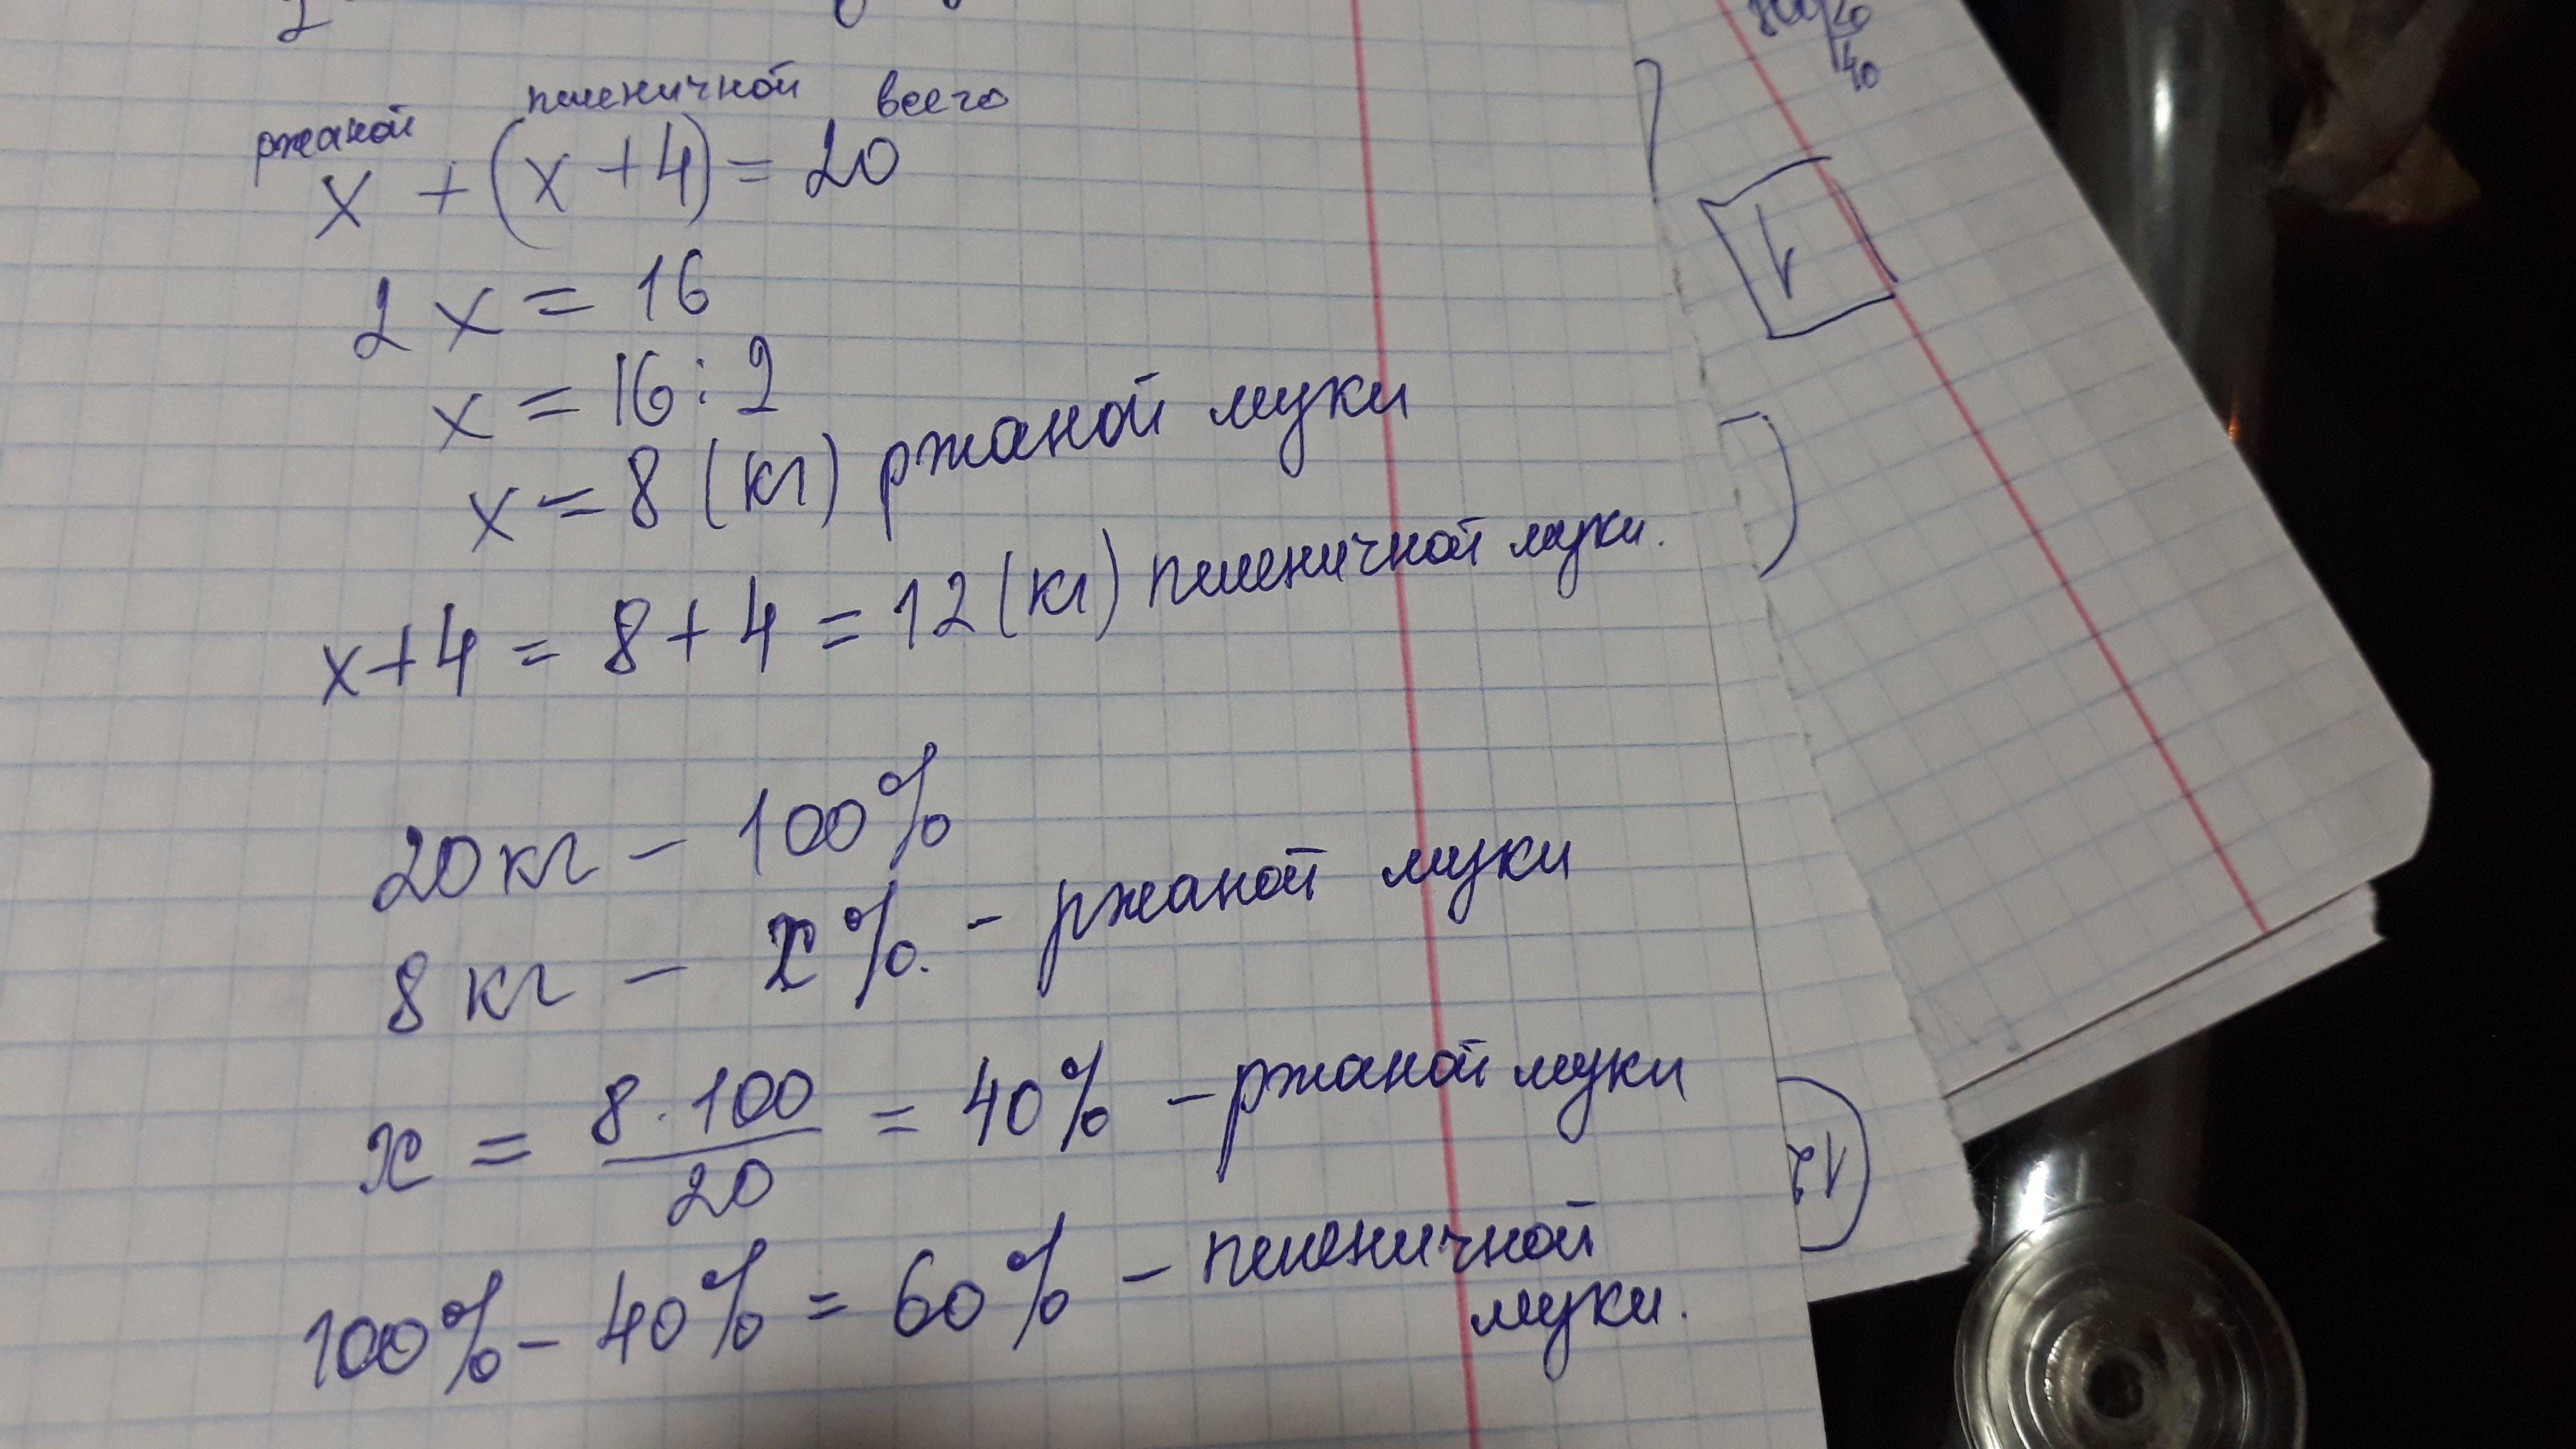 ржаной пшеничной всего
x + (x + 4) = 20
2x = 16
x = 16 : 2
x = 8 (кг) ржаной муки
x + 4 = 8 + 4 = 12 (кг) пшеничной муки.
20 кг - 100%
8 кг - x%. - ржаной муки
x = 8 · 100 / 20 = 40% - ржаной муки
100% - 40% = 60% - пшеничной
муки.
20
40
1
12